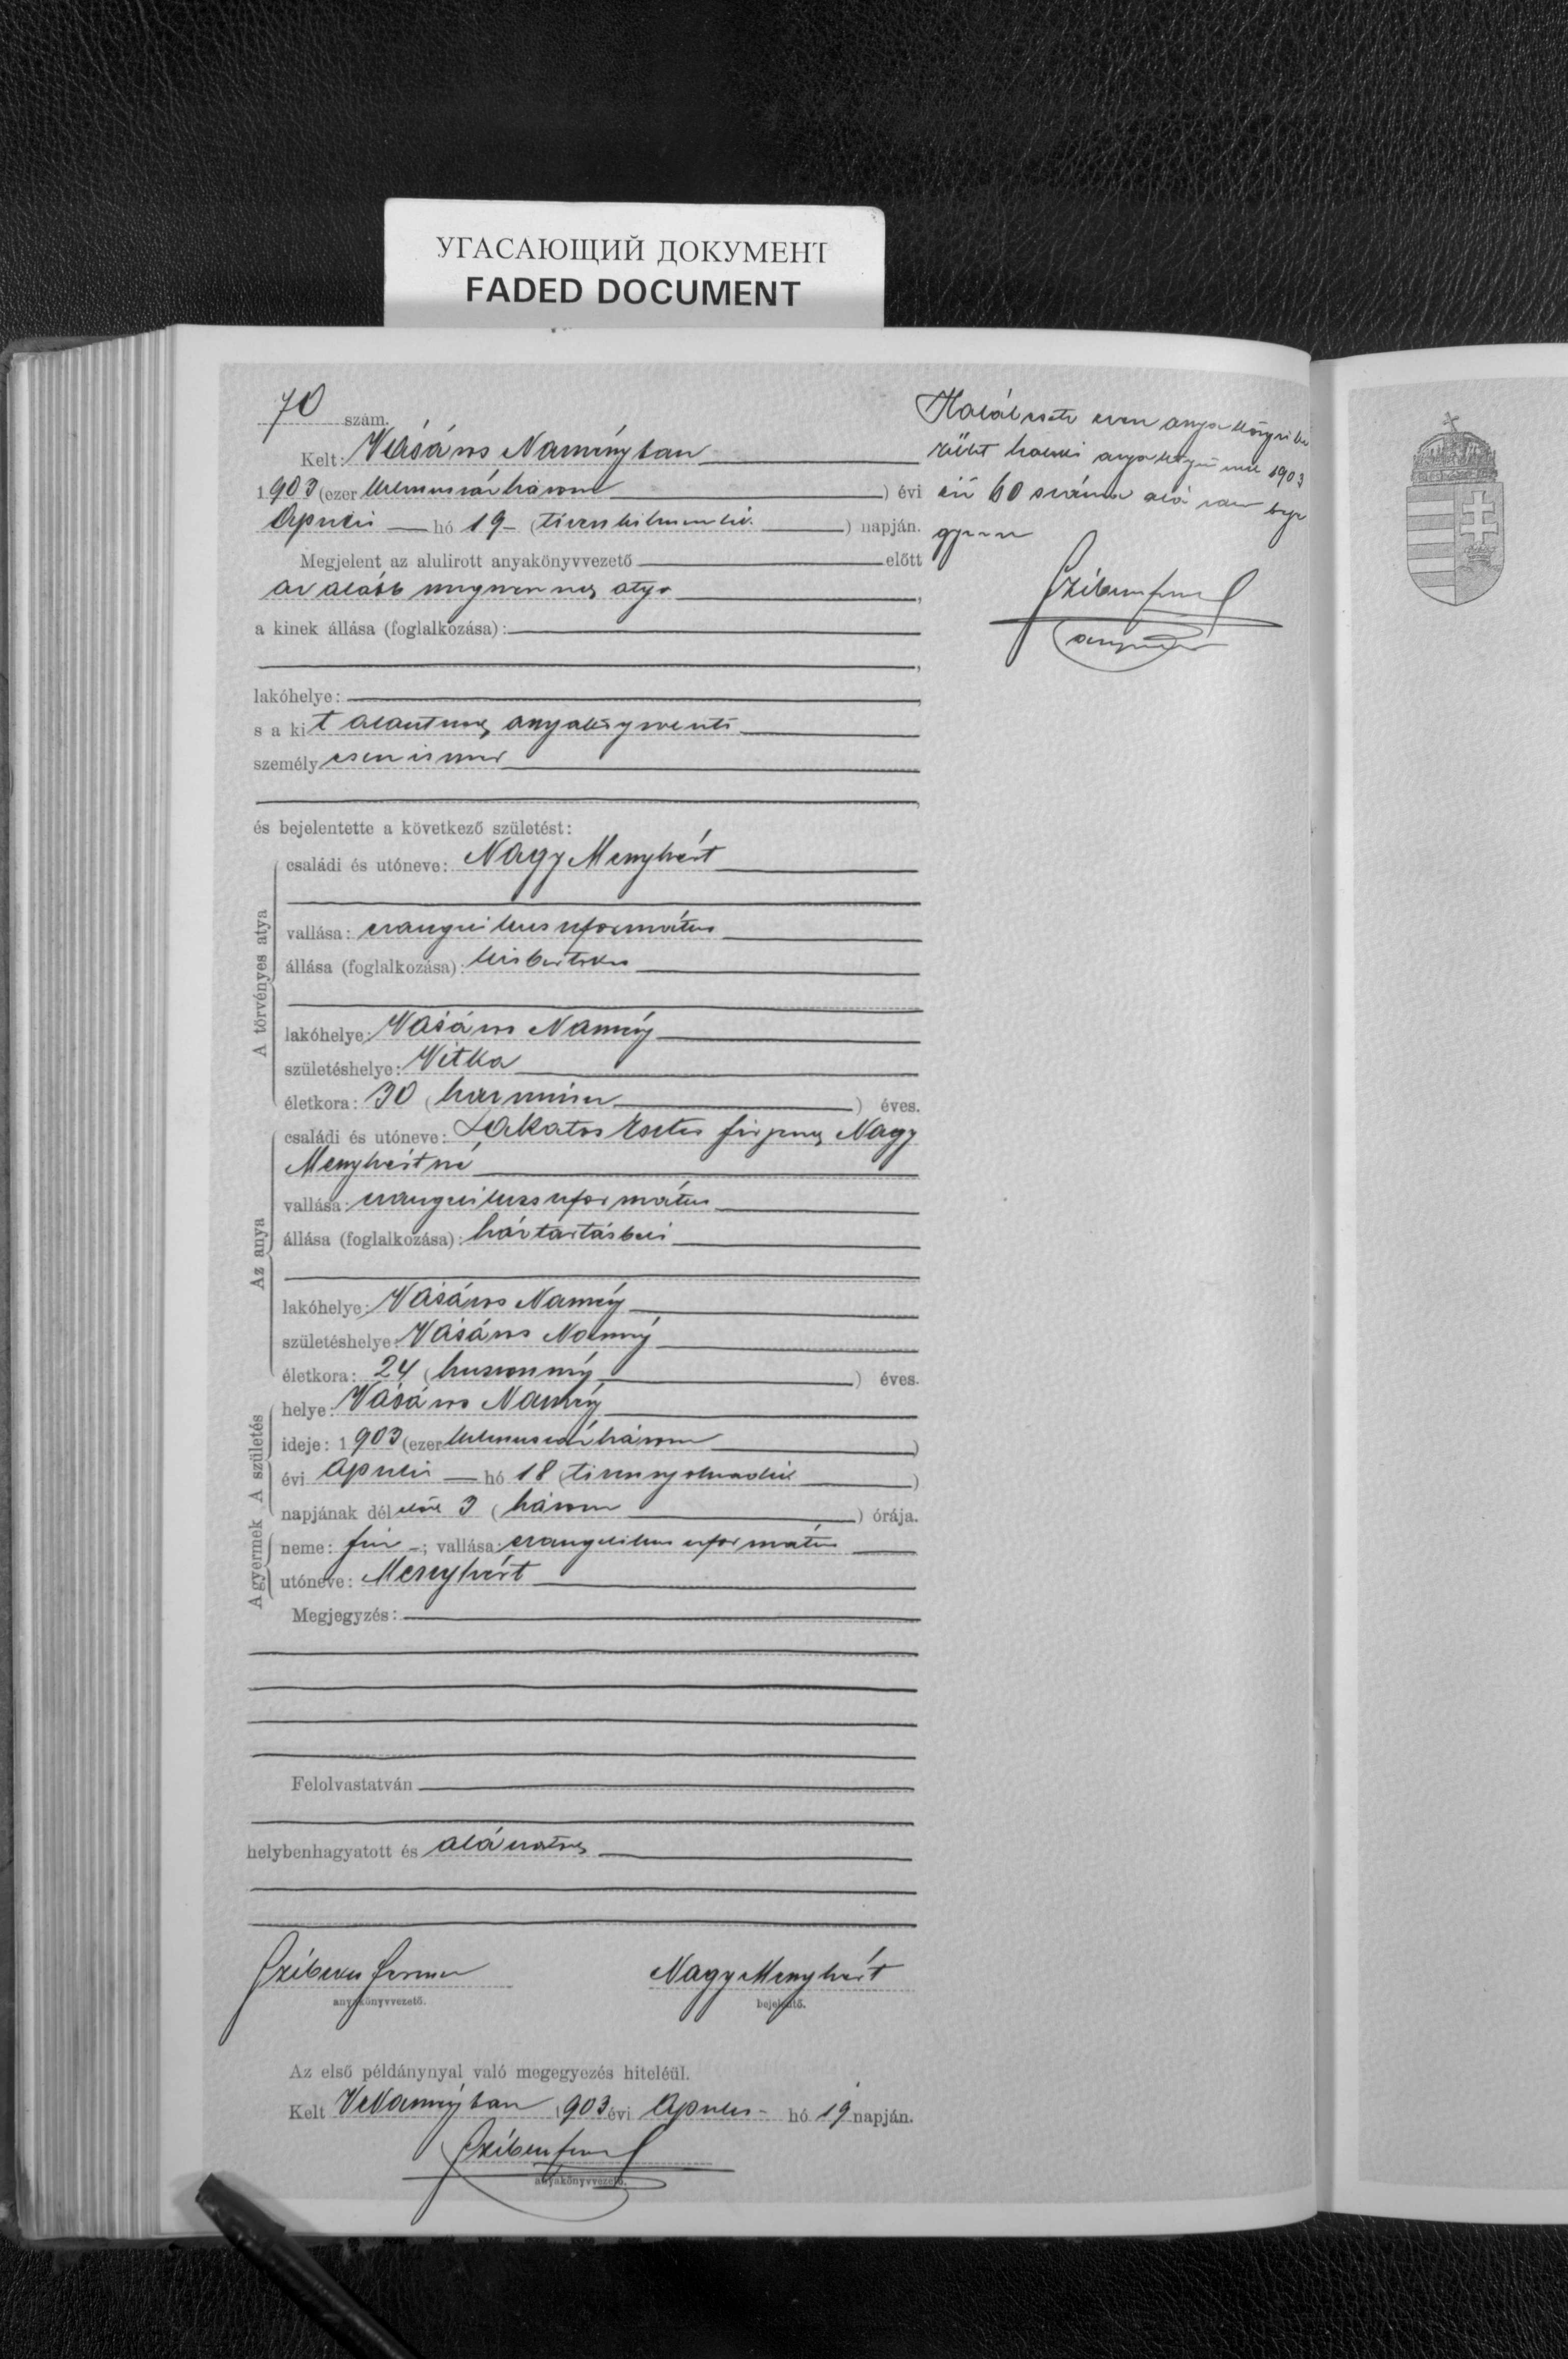 УГАСАЮЩИЙ ДОКУМЕНТ
FADED DOCUMENT
70 szám.
Kelt: Vásáros Naményban
1903 (ezer kilencszázhárom) évi
Április hó 19 (tizenkilenczedik) napján.
Megjelent az alulirott anyakönyvvezető előtt
az alább megnevezett atya,
a kinek állása (foglalkozása):
lakóhelye:
s a kit alantirott anyakönyvvezető
személyesen ismer
és bejelentette a következő születést:
A törvényes atya
családi és utóneve: Nagy Menyhért
vallása: evangelikus református
állása (foglalkozása): kisbirtokos
lakóhelye: Vásáros Namény
születéshelye: Vitka
életkora: 30 (harmincz) éves.
Az anya
családi és utóneve: Lakatos Eszter férjezett Nagy
Menyhértné
vallása: evangelikus református
állása (foglalkozása): háztartásbeli
lakóhelye: Vásáros Namény
születéshelye: Vásáros Namény
életkora: 24 (huszonnégy) éves.
A születés
helye: Vásáros Namény
ideje: 1903 (ezer kilencszázhárom)
évi Április hó 18 (tizennyolczadik)
napjának délelőtt 3 (három) órája.
A gyermek
neme: fiú; vallása: evangelikus református
utóneve: Menyhért
Megjegyzés:
Felolvastatván
helybenhagyatott és aláiratott
anyakönyvvezető.
Nagy Menyhért
bejelentő.
Az első példánynyal való megegyezés hiteléül.
Kelt VNaményban 1903 évi Április hó 19 napján.
anyakönyvvezető.
Halálesete ezen anyakönyvi ke
rület halotti anyakönyvének 1903
évi 60 száma alá van beje
gyezve